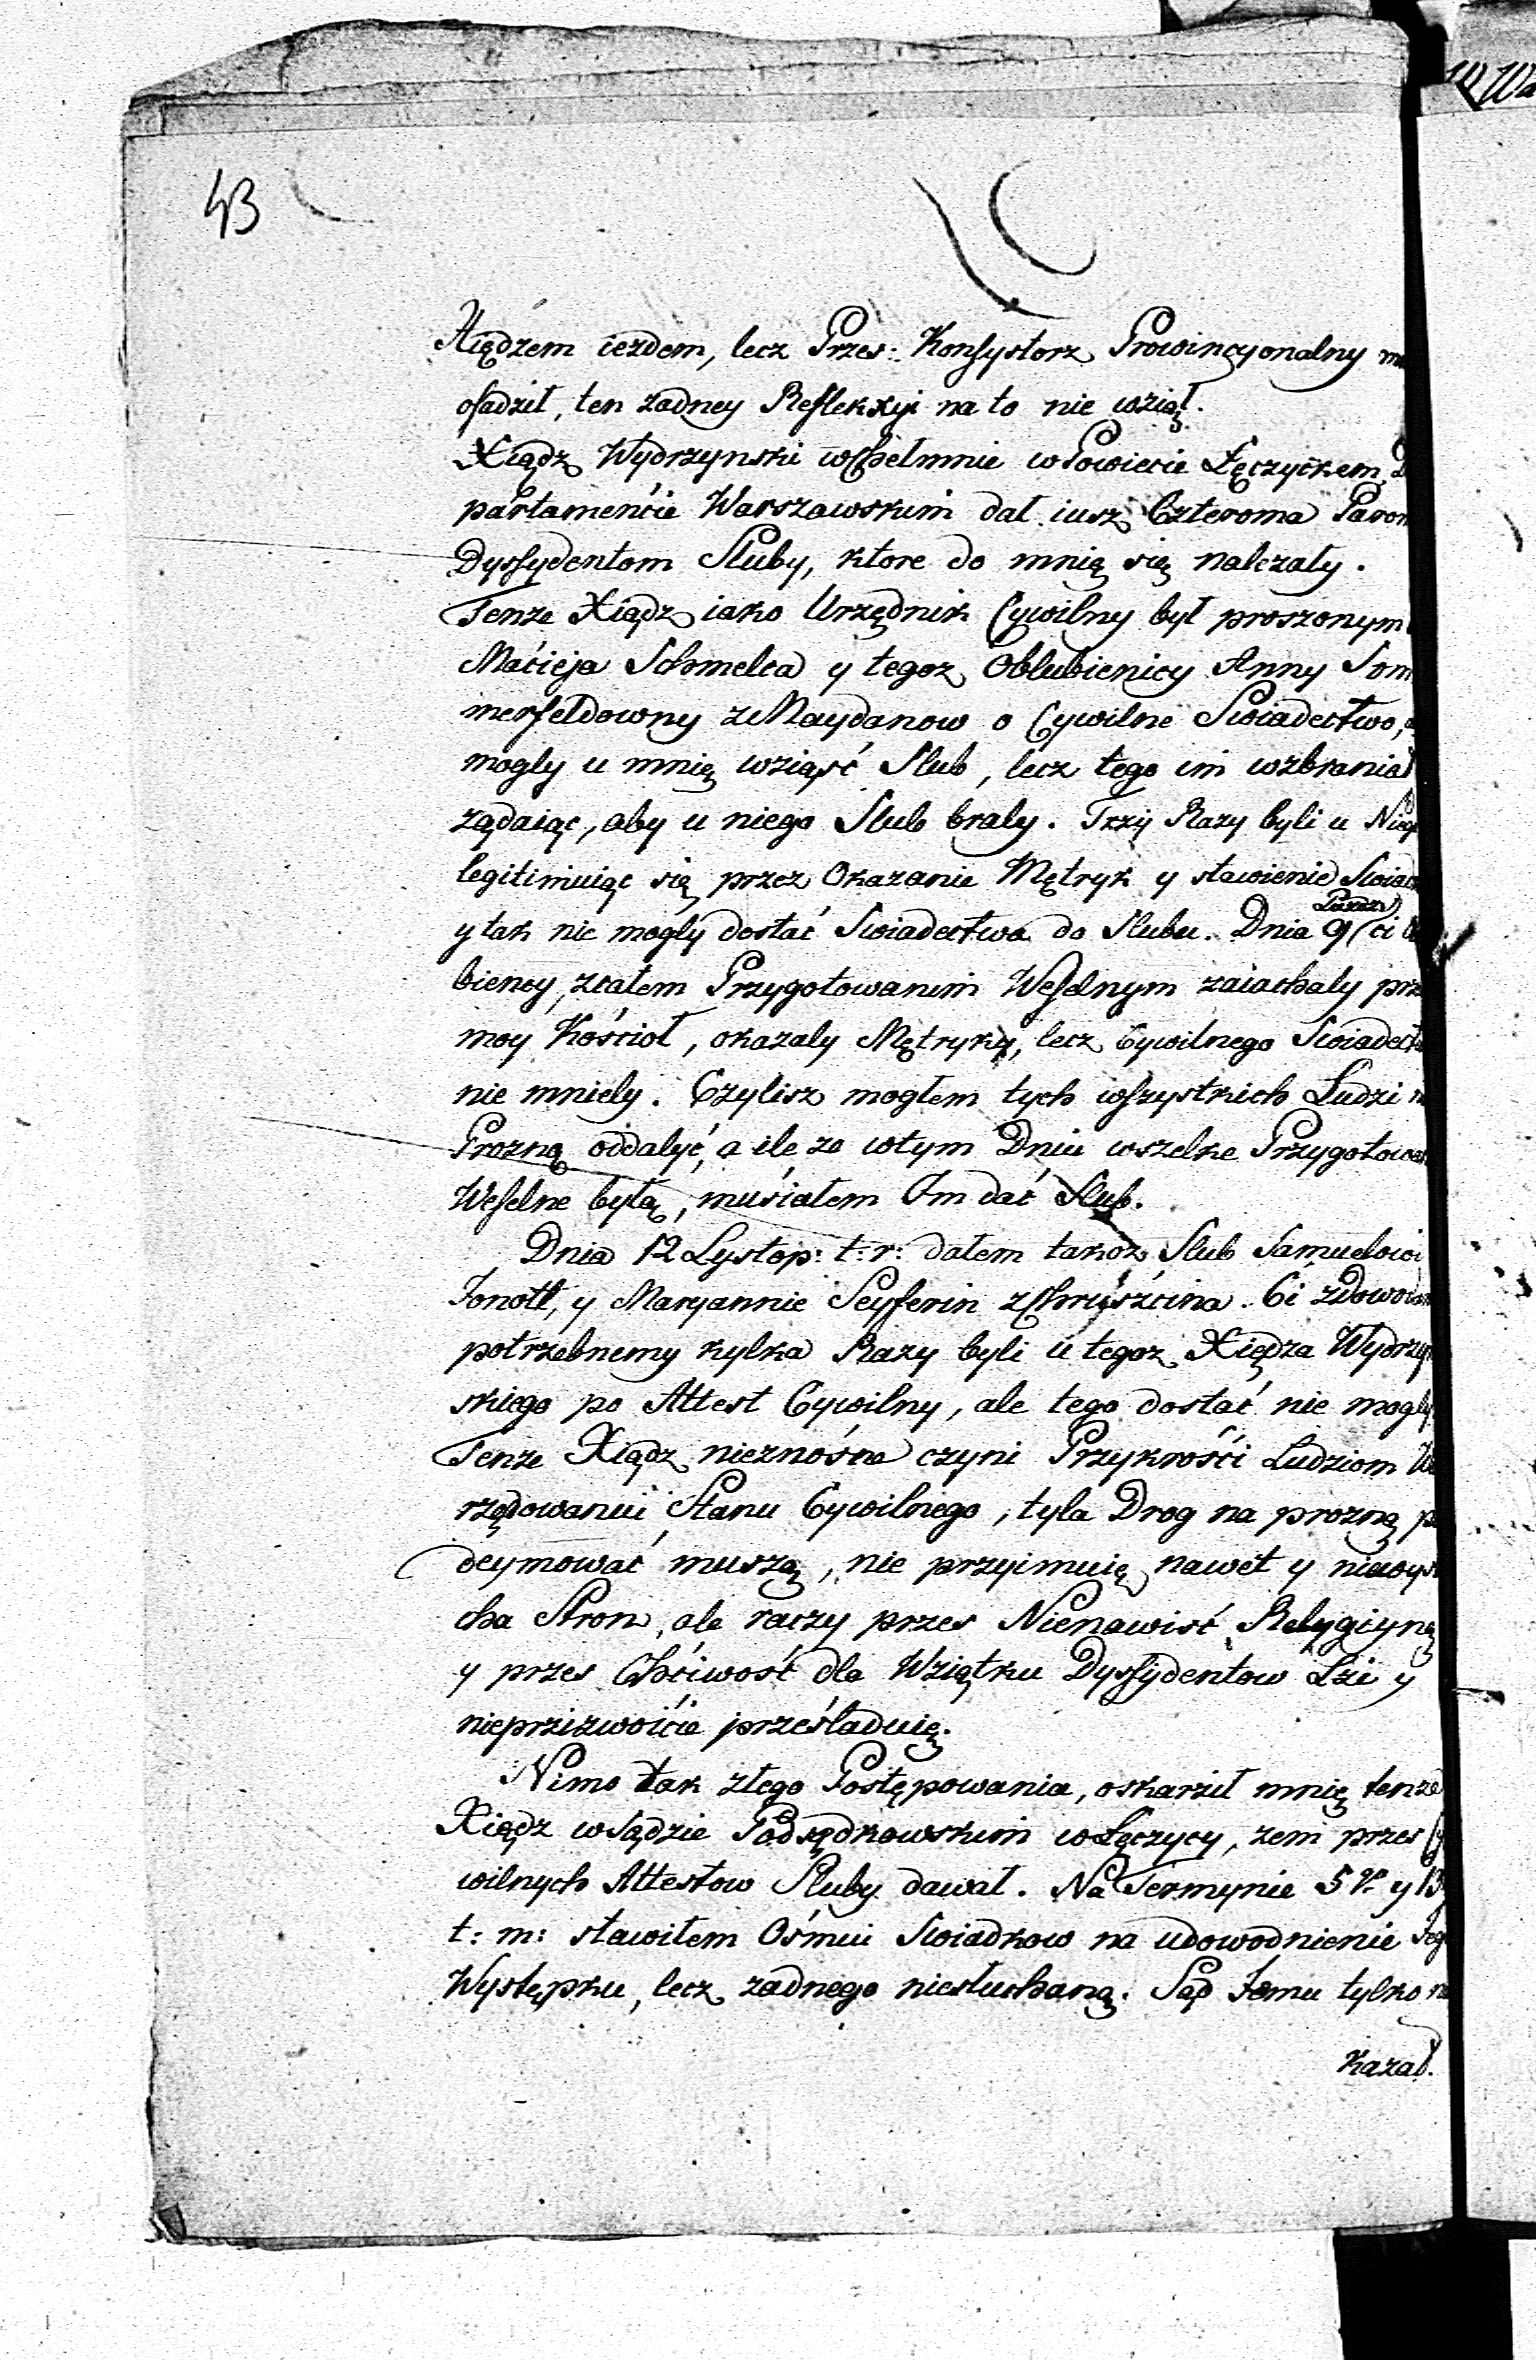 43
Xiędzem iezdem, lecz Przes: Konsystorz Prowincyonalny
osadzil, ten zadney Reflekxyi na to nie wziął.
Xiądz Wydrzynski w Chelmnie w Powiecie Łęczyckem,
partamencie Warszawskim dał iusz Czteroma Parom
Dyssydentom Sluby, ktore do mnię się nalezały.
Tenze Xiądz iako Urzędnik Cywilny był proszonym
Macieja Schmelca y tegoz Oblubienicy Anny Som
merfeldowny z Maydanow o Cywilne Swiadectwo,
mogly u mnię wziąść Slub, lecz tego im wzbraniał
ządaiąc, aby u niego Slub braly. Trzy Razy byli u
legitimuiąc się przez Okazanie Mętryk y stawienie
y tak nie mogly dostać Swiadectwa do Slubu. Dnia 9 ci
biency, zcałem Przygotowanim Weselnym zaiachaly
moy Kościoł, okazaly Mętryky, lecz Cywilnego
nie mniely. Czylisz mogłem tych wszystkich Ludzi
Prozną oddalyć, a ile ze wtym Dniu wszelke
Weselne byłą, musiałem Im dać Slub.
Dnia 12 Lystop: t: r: dałem takoz Slub Samuelowi
Jonott, y Maryannie Seyferin z Chruścina. Ci
potrzebnemy kylka Razy byli u tegoz Xiędza Wydrzyn
skiego po Attest Cywilny, ale tego dostać nie mogly.
Tenze Xiądz nieznośne czyni Przykrości Ludziom
rzędowaniu Stanu Cywilnego, tyla Drog na prozną
deymować muszą, nie przyimuię nawet y
cha Stron, ale raczy przes Nienawiść Relygiyną
y przes Chciwość dla Wziątku Dyssydentow Lzi y
nieprzizwoicie prześladuię.
Nimo tak złego Postępowania, oskarzil mnię tenze
Xiądz w Sądzie Podsędkowskim w Łęczycy, zem przes
wilnych Attestow Sluby dawał. Na Termynie 5 y 13
t: m: stawiłem Ośmiu Swiadkow na udowodnienie
Występku, lecz zadnego niesłuchaną. Sąd temu tylko
kazał.